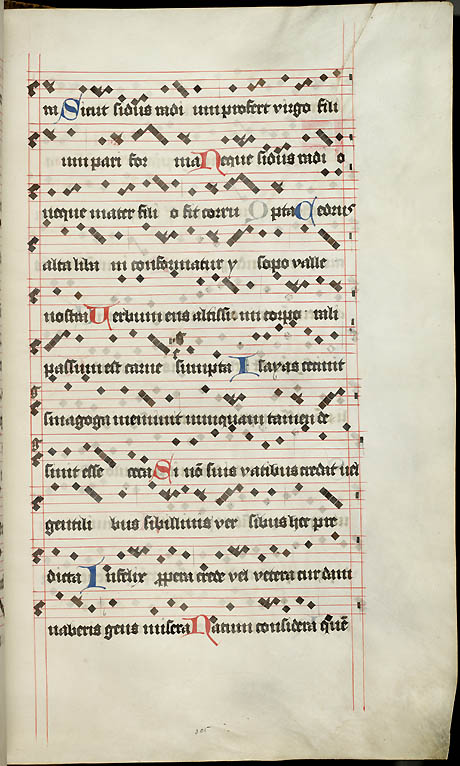 ra Sicut sidus radi um profert virgo fili
um pari for ma Neque sidus radi o
neque mater fili o fit corru pta Cedrus
alta liba ni conformatur y sopo valle
nostra Verbum ens altissi mi corpo rali
passum est carne sumpta Isayas cecinit
sinagoga meminit nunquam tamen de
sinit esse ceca Si nō suis vatibus credat vel
gentili bus sibillinis ver sibus hec pre
dicta Infelix ꝓpera crede vel vetera cur dam
naberis gens misera Natum considera quē